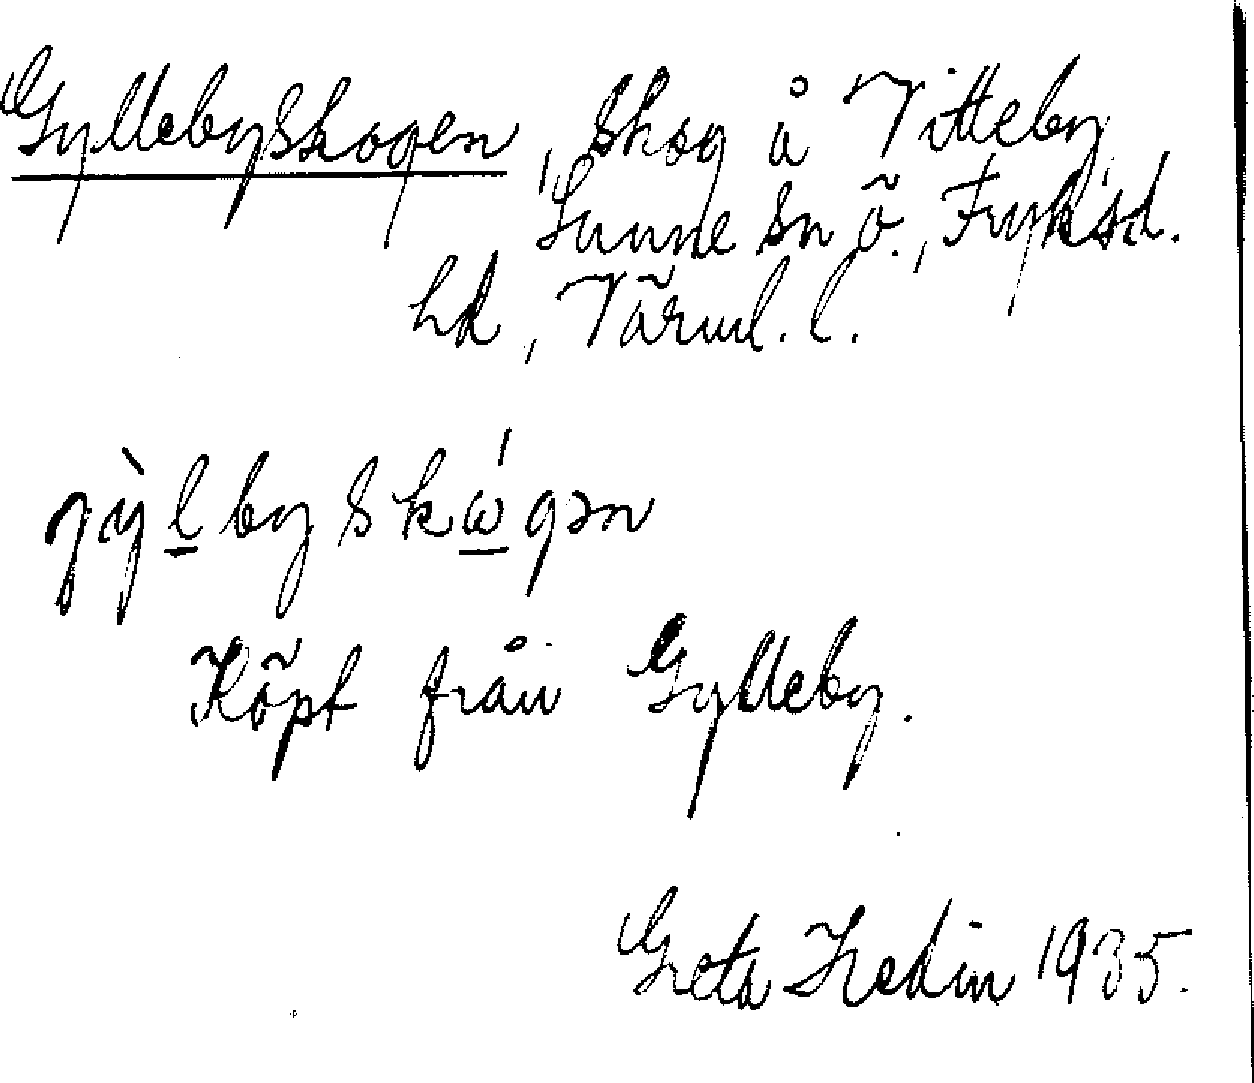 Gyllebyskogen, skog å Vitteby,
Sunne sn ö., Fryksd.
hd, Värml. l.
jỳl by skώgən
Köpt från Gylleby.
Greta Hedin 1935.